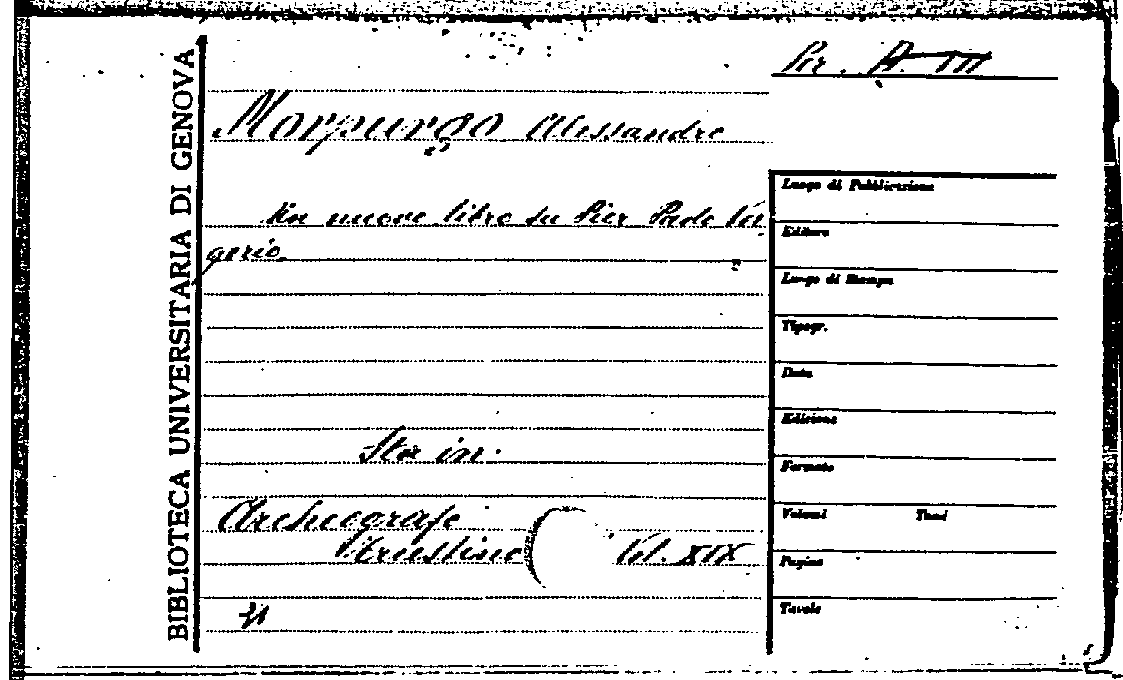 BIBLIOTECA UNIVERSITARIA DI GENOVA
Per. A. III
Morpurgo Alessandro
Un nuovo libro su Pier Paolo Ver
gerio.
Sta in:
Archeografo
Triestino Vol. XIX
Luogo di Pubblicazione
Editore
Luogo di Stampa
Tipogr.
Data
Edizione
Formato
Volumi Tomi
Pagine
Tavole